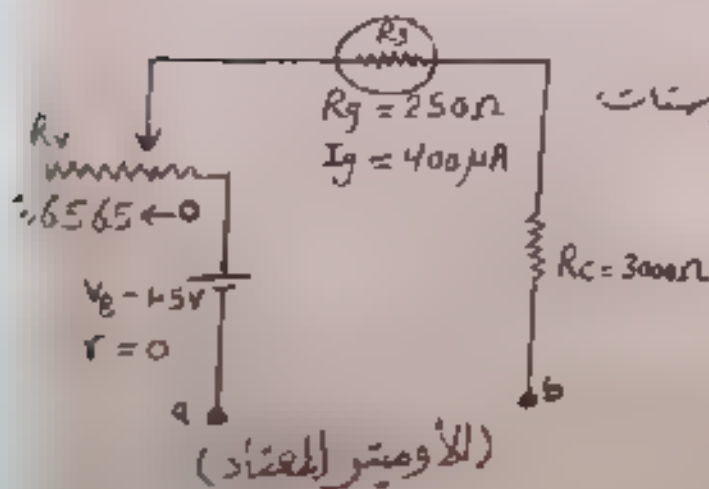 Rg
Rg = 250Ω
Ig = 400μA
Rv
6565 ← 0
VB = 1.5V
r = 0
Rc = 3000Ω
a
b
(الأوميتر المعتاد)